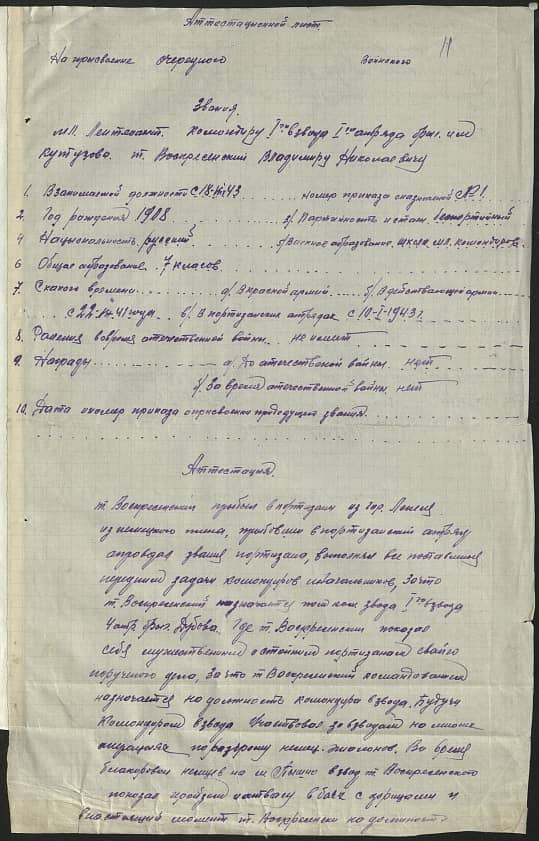 Аттестационной лист.
11
На присвоение очередного Воинского
Звания.
мл. Лентенант. Командиру I го взвода I го отряда
Кутузова. т. Воскресенский Владимиру Николаевичу
1. Взанимаемой должности с 18- 43 номер приказа № 1.
2. Год рождения 1908 3/ Партийность и стаж. беспартийный
4 Национальность русский 5/ Военное образование. школа мл. командиров
6 Общее образование. 7 классов.
7 Скакого времени а/ В красной армий б/ В действающей армии
с 22 41 года. в/ В партизанских отрядах с 10-I-1943 г.
8. Ранения вовремя отечественной войны. не имеет
9. Награды а/ До отечественой войны. нет
б/ За время отечественной войны нет
10. Дата и номер приказа о присвоении предедущего звания.
Аттестация.
т Воскресенский прибыл в партизаны из гор.
из немецкого плена, в партизанский отряд
оправдал звания партизана, выполнял все поставленые
перед ним задачи командиров иначальников, За что
т. Воскресенский назначается взвода I го взвода
Где т. Воскресенский показал
себя мужественным и стойким партизаном своего
порученого дела, За что т Воскресенский командованием
назначается на должность командира взвода, Будучи
Командиром взвода Участвовал со взводом на
по разгрому немец. эшелонов. Во время
немцев на м взвод т. Воскресенского
показал в боях с и
внастоящий момент т. Воскресенский на должност